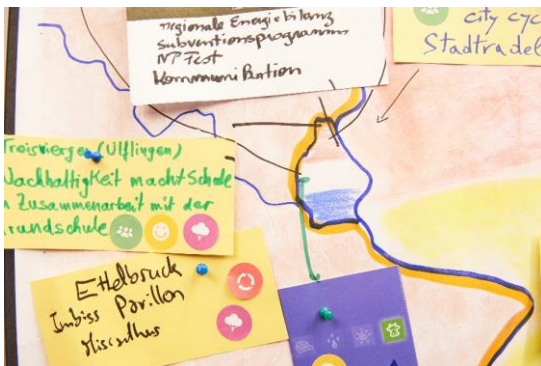 regionale Energiebilanz
Subventionsprogramm
NP Fest
Kommunikation
city cyc
Stadtradel
Troisvierges (Ulflingen)
Nachhaltigkeit macht Schule
n Zusammenarbeit mit der
rundschule
Ettelbruck
Imbiss Pavillon
Miscanthus